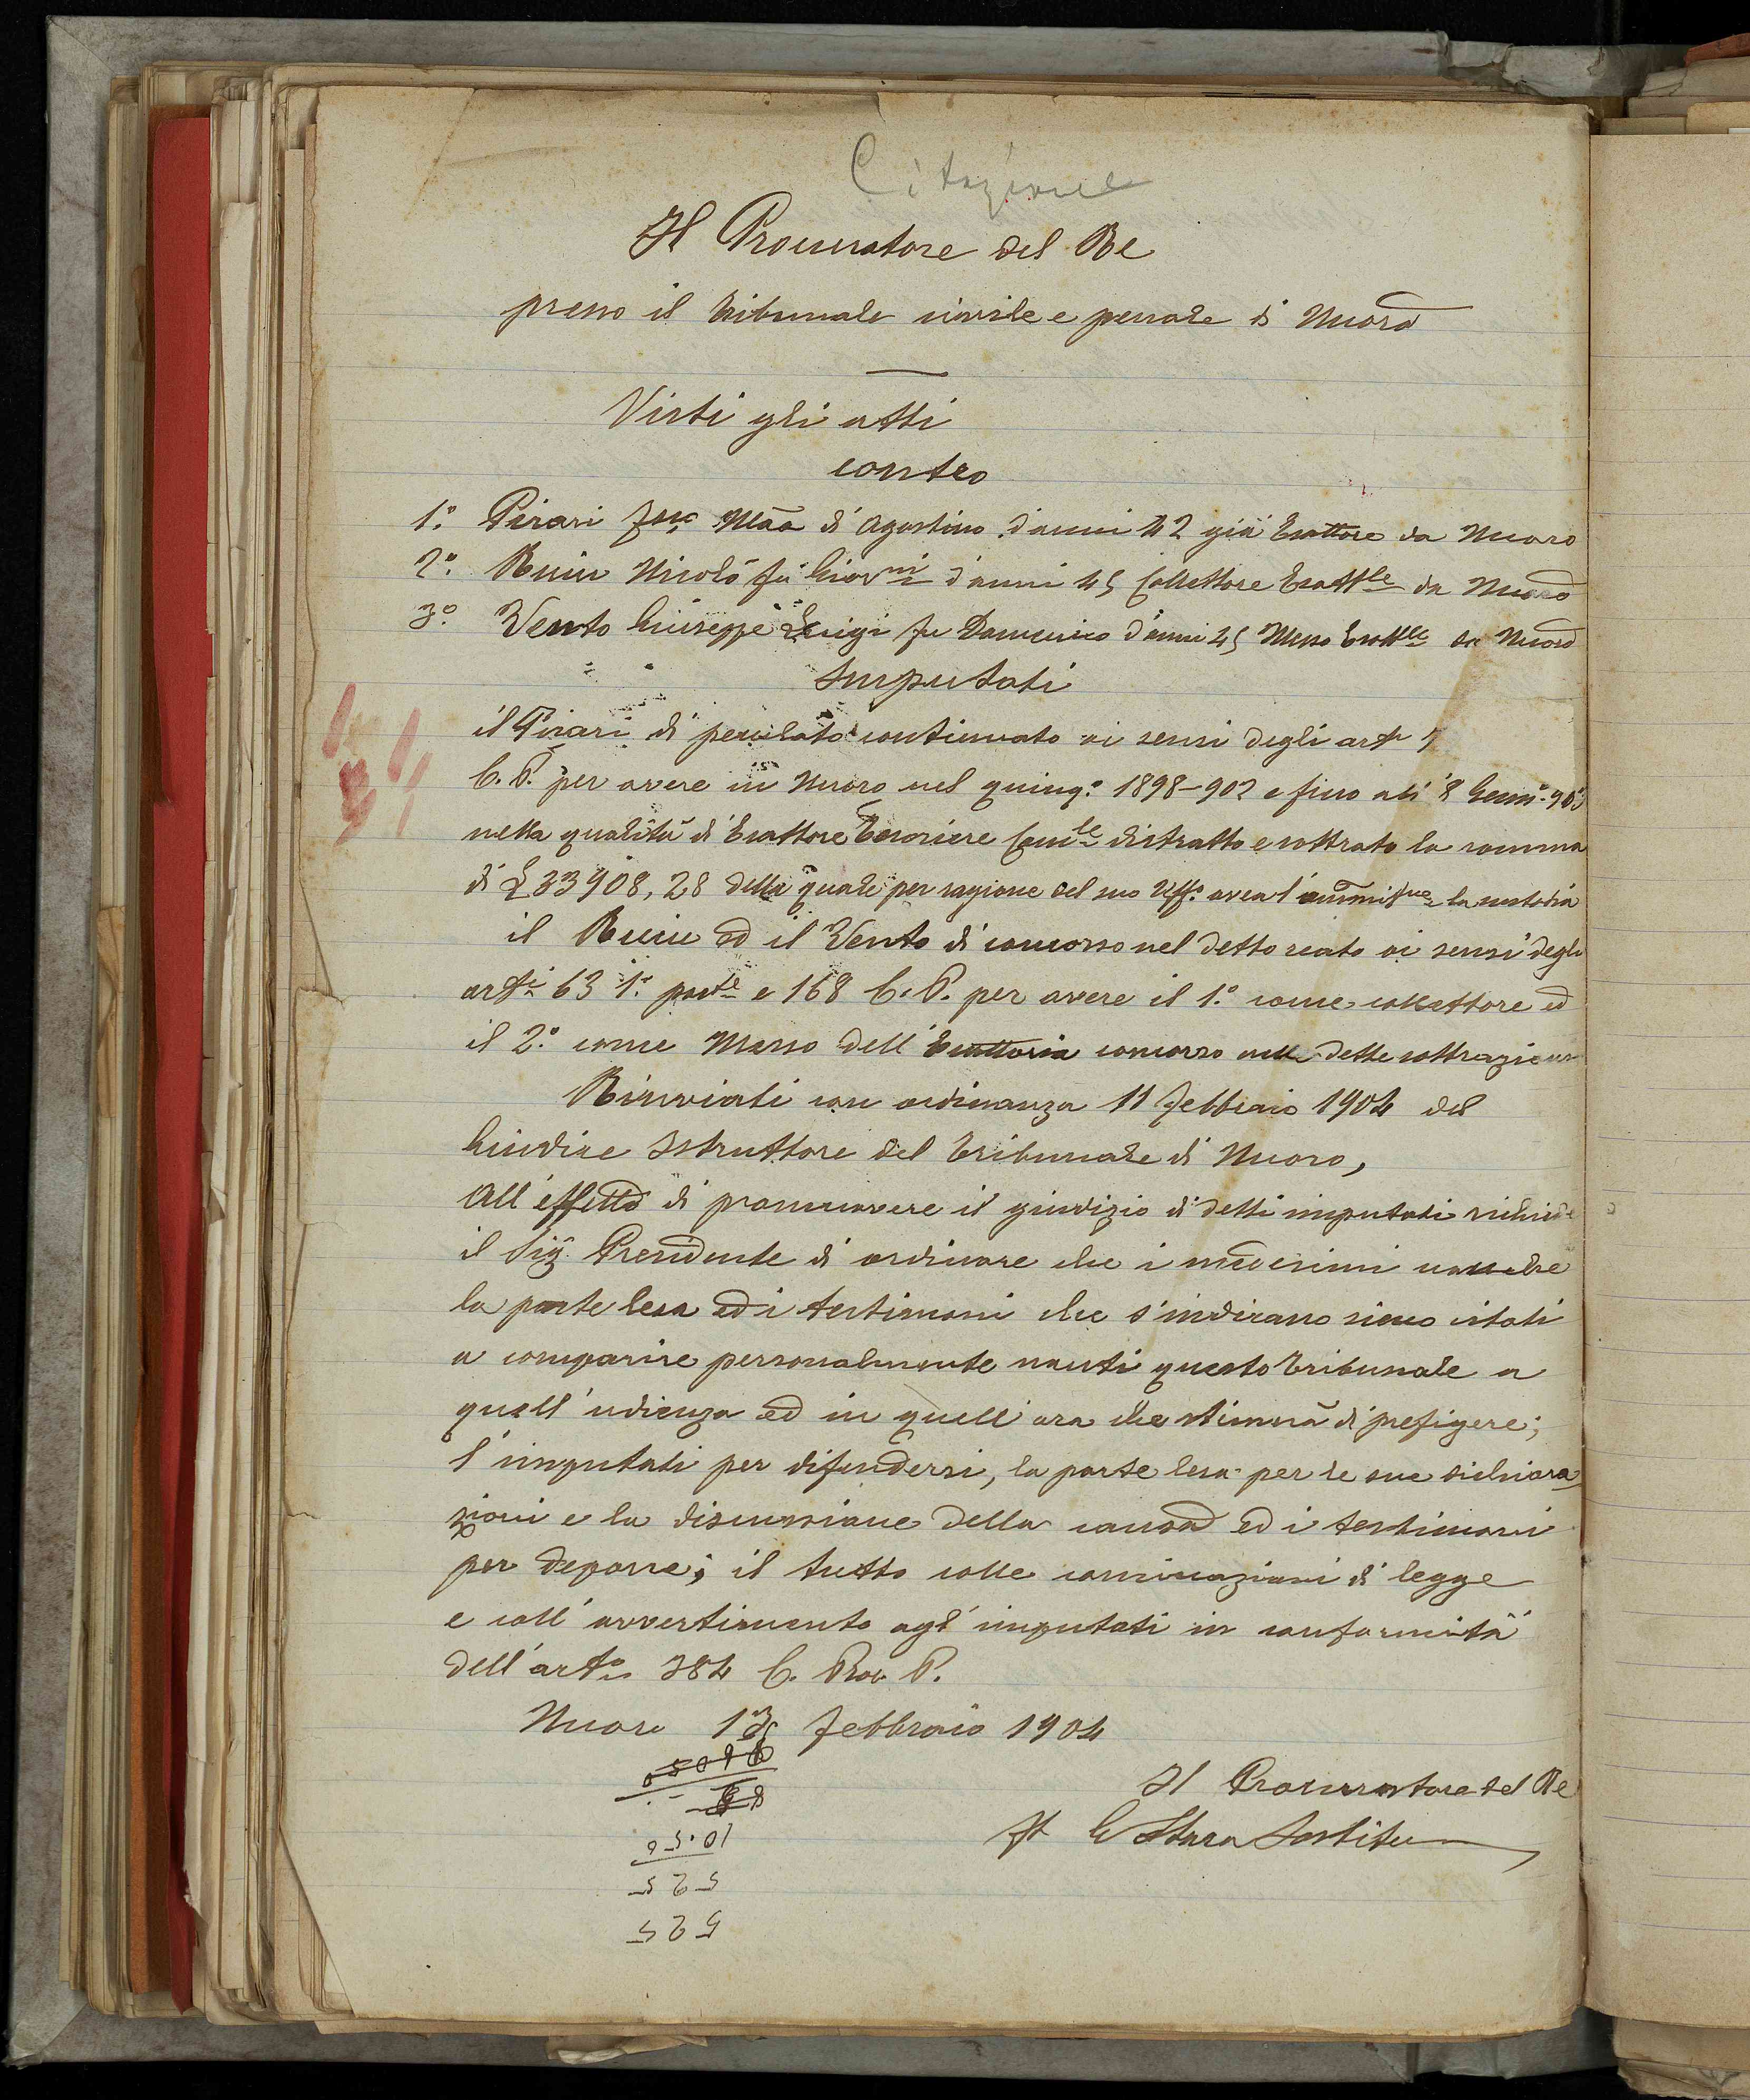 Citazione
Il Procuratore del Re
presso il tribunale civile e penale di Nuoro
Visti gli atti
contro
1.° Pirari Franc Maa di Agostino d'anni 42 già Esattore da Nuoro
2.° Ruiu Nicolò fu Giovni d'anni 45 Collettore Esattle da Nuoro
3.° Vento Giuseppe Luigi fu Domenico d'anni 45 Messo Esattle da Nuoro
Imputati
il Pirari di peculato continuato ai sensi degli arti
C. P. per avere in Nuoro nel quinq.° 1898-902 e fino alì 8 Genn.°
nella qualità di Esattore Tesoriere Comle distratto e sottratto la somma
di £ 33908,28 della quale per ragione del suo Uff.° avea l'ammine la custodia
il Ruiu ed il Vento di concorso nel detto reato ai sensi degli
arti 63 1.° parte e 168 C. P. per avere il 1.° come collettore ed
il 2.° come Messo dell'Esattoria concorso nelle dette sottrazioni
Rinviati con ordinanza 11 Febbraio 1904 del
Giudice Istruttore del Tribunale di Nuoro,
All'effetto di promuovere il giudizio di detti imputati richiede
il Sig. Presidente di ordinare che i medesimi nonche
la parte lesa ed i testimoni che s'indicano sieno citati
a comparire personalmente nanti questo Tribunale a
quell'udienza ed in quell'ora che stimerà di prefigere;
l'imputati per difendersi, la parte lesa per le sue dichiara
zioni e la discussione della causa ed i testimoni
per deporre; il tutto colle comminazioni di legge
e coll'avvertimento agl'imputati in conformità
dell'arto 384 C. Proc P.
Nuoro Febbraio 1904
Il Procuratore del Re
10.50
525
525